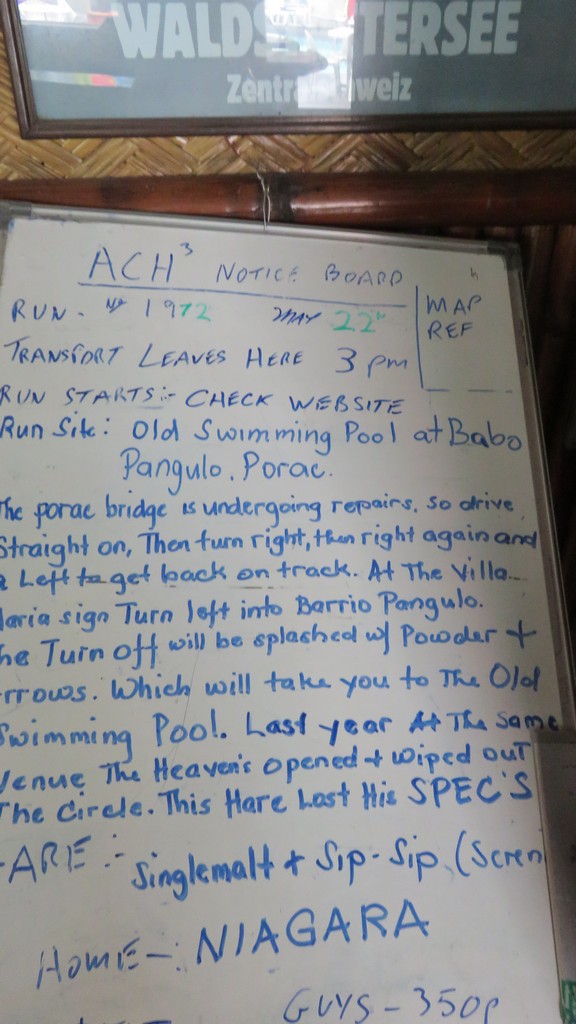 WALDS TERSEE
Zentra weiz
ACH³ NOTICE BOARD
RUN - No 1972 2MAY 22"
MAP
REF
TRANSPORT LEAVES HERE 3 pm
RUN STARTS :- CHECK WEBSITE
Run Site: Old Swimming Pool at Babo
Pangulo, Porac.
The porac bridge is undergoing repairs, so drive
Straight on, Then turn right, then right again and
a Left to get back on track. At The Villa
Maria sign Turn left into Barrio Pangulo.
The Turn off will be splashed w/ Powder +
Arrows. Which will take you to The Old
Swimming Pool. Last year At The Same
Venue The Heaven's opened + wiped out
The Circle. This Hare Lost His SPEC'S
HARE :- Singlemalt + Sip-Sip (Scren
HOME -: NIAGARA
GUYS - 350p